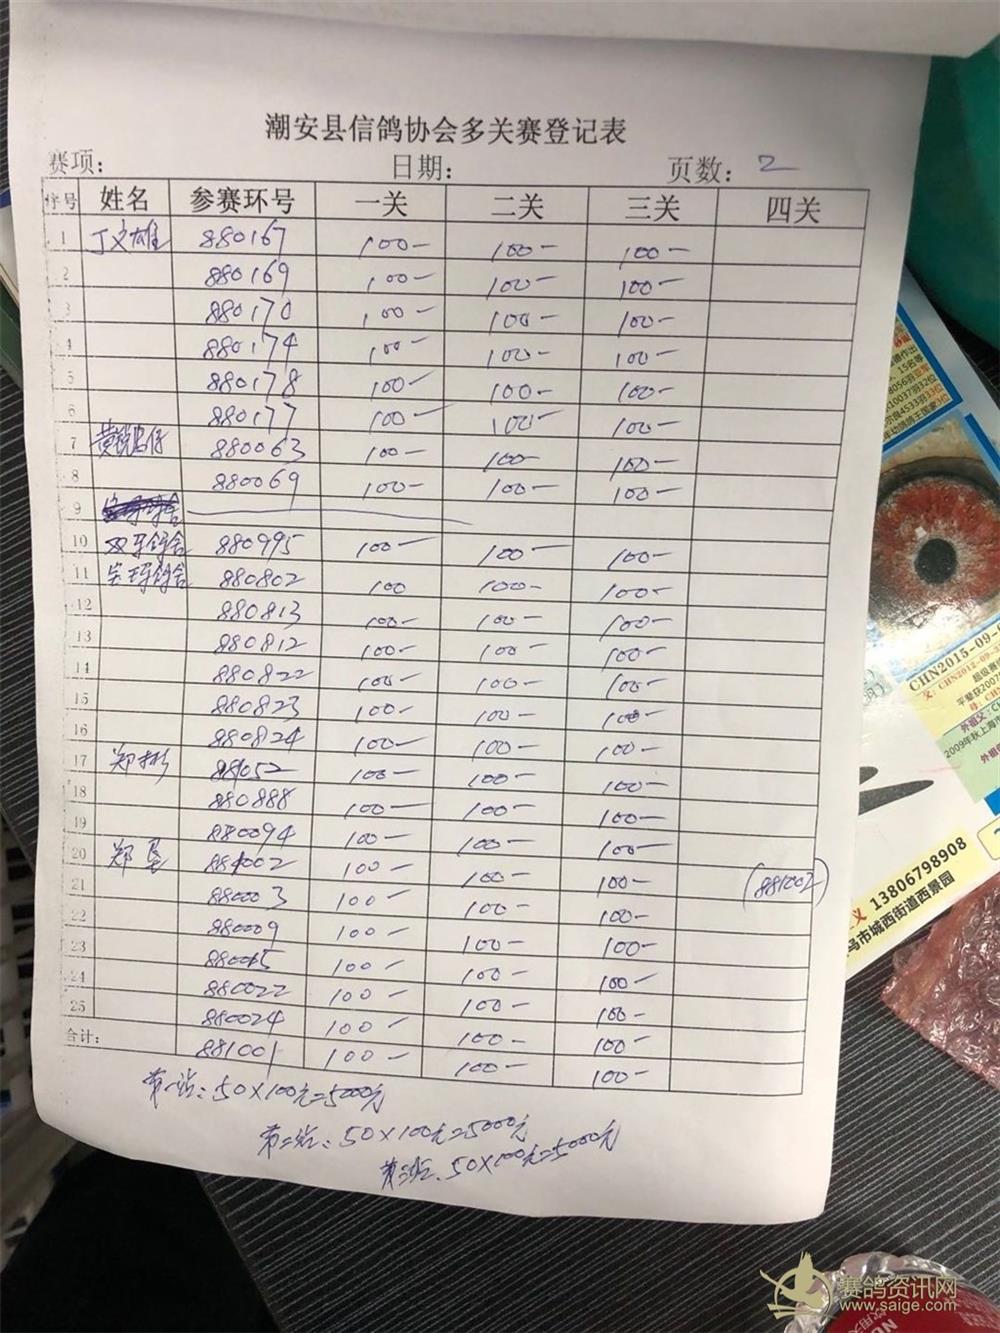 潮安县信鸽协会多关赛登记表
赛项: 日期: 页数: 2
序号 姓名 参赛环号 一关 二关 三关 四关
1 丁文雄 880167 100- 100- 100-
2 880169 100- 100- 100-
3 880170 100- 100- 100-
4 880174 100- 100- 100-
5 880178 100- 100- 100-
6 880177 100- 100- 100-
7 880063 100- 100- 100-
8 880069 100- 100- 100-
9
10 双军鸽舍 880995 100- 100- 100-
11 鸽舍 880802 100 100- 100-
12 880813 100- 100- 100-
13 880812 100- 100- 100-
14 880822 100- 100- 100-
15 880823 100- 100- 100-
16 880824 100- 100- 100-
17 郑彬 88052 100- 100- 100-
18 880888 100- 100- 100-
19 880094 100- 100- 100-
20 郑 881002 100- 100- 100- (881002)
21 880003 100- 100- 100-
22 880009 100- 100- 100-
23 880015 100- 100- 100-
24 880022 100- 100- 100-
25 880024 100- 100- 100-
合计: 881001 100- 100- 100-
第一站: 50×100元=5000元
第二站: 50×100元=5000元
第三站: 50×100元=5000元
CHN2015-09-
13806798908
城西街道西景园
赛鸽资讯网
www.saige.com